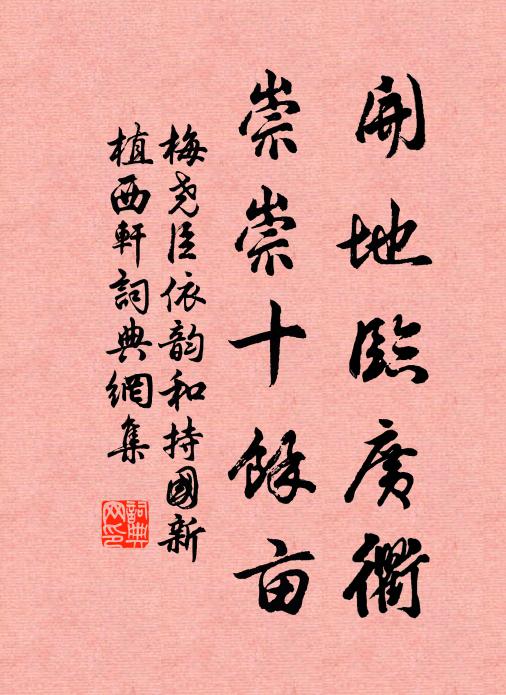 開地臨廣衢
崇崇十餘亩
梅尧臣依韵和持國新
植西軒詞典網集
詞典
网印